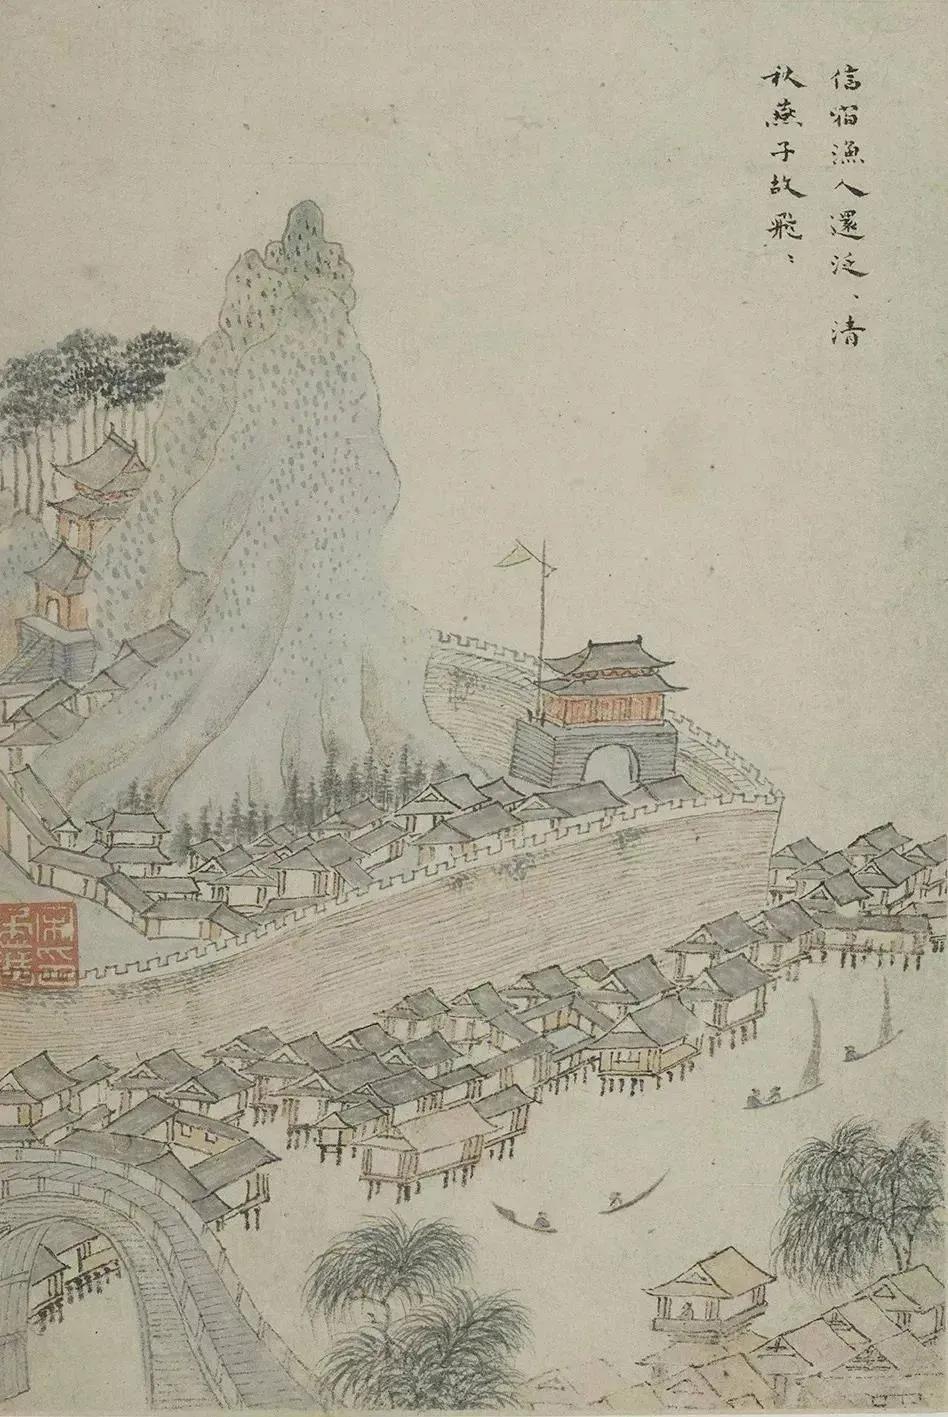 信宿漁人還泛〻清
秋燕子故飛〻